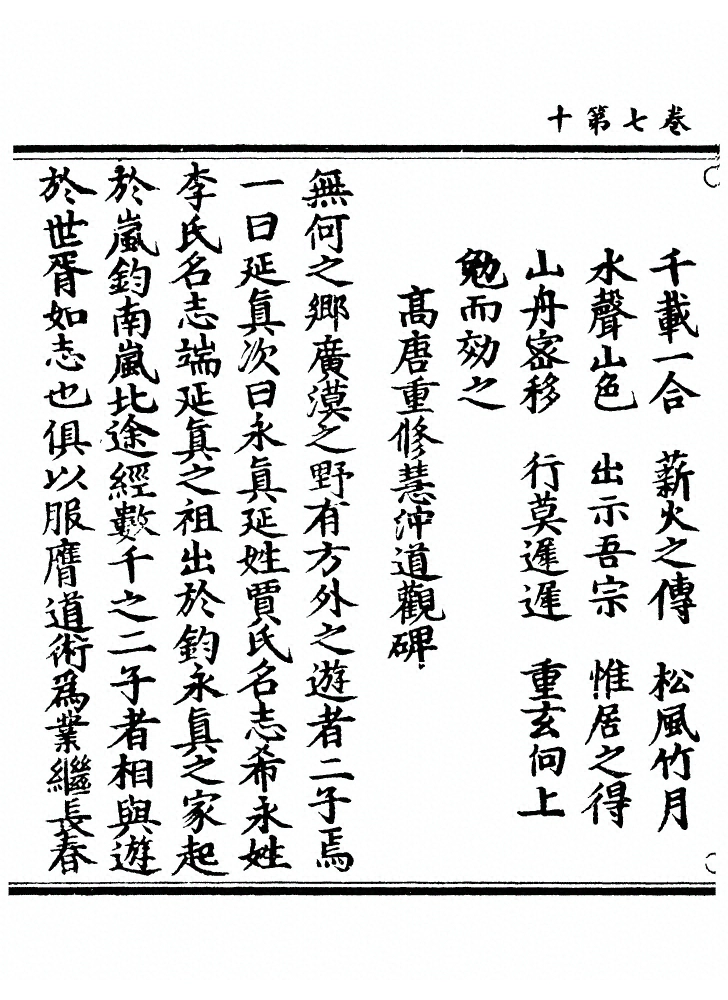 卷七第十
千載一合　薪火之傳　松風竹月
水聲山色　出示吾宗　惟居之得
山舟密移　行莫遲遲　重玄向上
勉而効之
髙唐重修慧沖道觀碑
無何之鄉廣漠之野有方外之遊者二子焉
一曰延眞次曰永眞延姓賈氏名志希永姓
李氏名志端延眞之祖出於鈞永眞之家起
於嵐鈞南嵐比途經數千之二子者相與遊
於世胥如志也俱以服膺道術爲業繼長春